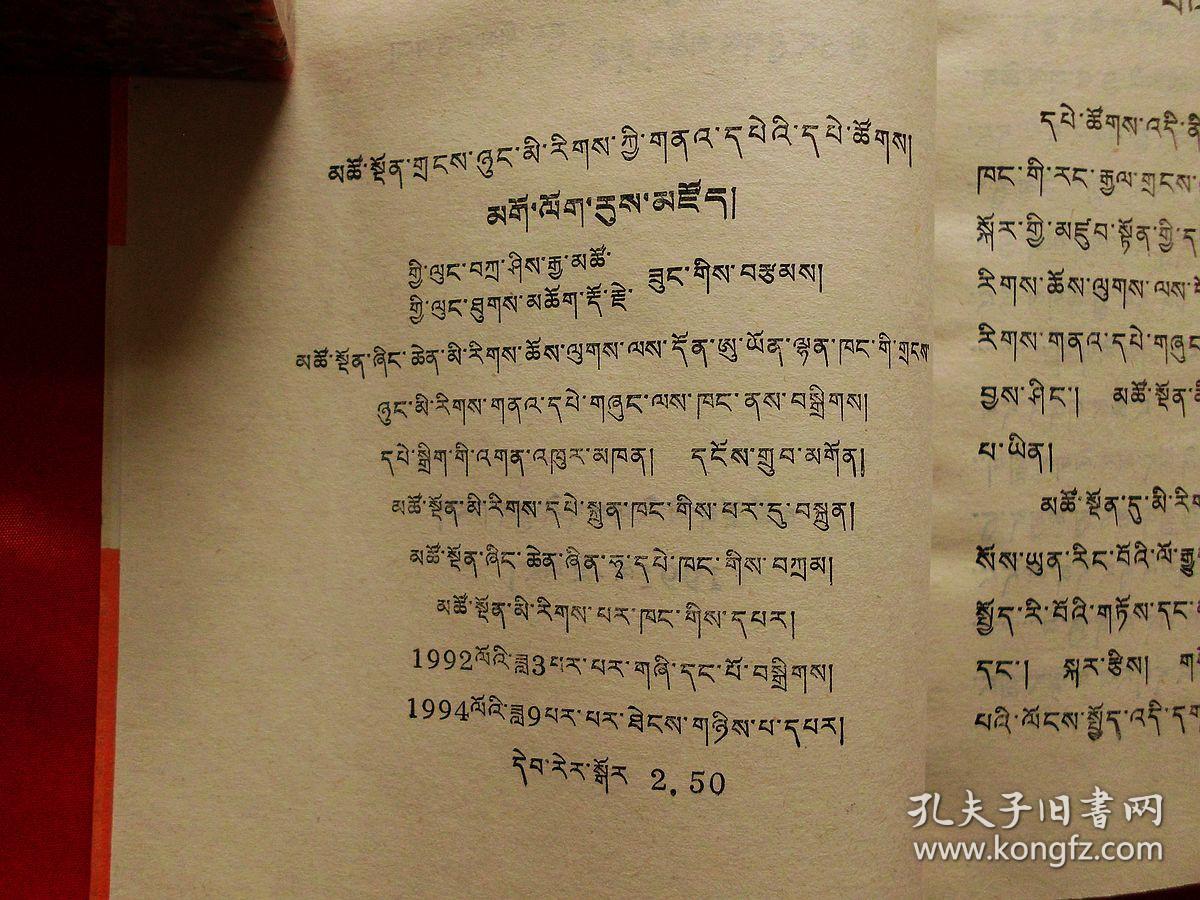 མཚོ་སྔོན་གྲངས་ཉུང་མི་རིགས་ཀྱི་གནའ་དཔེའི་དཔེ་ཚོགས།
མགོ་ལོག་རུས་མཛོད།
ཀྱི་ལུང་བཀྲ་ཤིས་རྒྱ་མཚོ་
གྱི་ལུང་ཐུགས་མཆོག་རྡོ་རྗེ་
ཟུང་གིས་བརྩམས།
མཚོ་སྔོན་ཞིང་ཆེན་མི་རིགས་ཆོས་ལུགས་ལས་དོན་ཨུ་ཡོན་ལྷན་ཁང་གི་གྲངས་
ཉུང་མི་རིགས་གནའ་དཔེ་གཞུང་ལས་ཁང་ནས་བསྒྲིགས།
དཔེ་སྒྲིག་གི་འགན་འཁུར་མཁན། དངོས་གྲུབ་མགོན།
མཚོ་སྔོན་མི་རིགས་དཔེ་སྐྲུན་ཁང་གིས་པར་དུ་བསྐྲུན།
མཚོ་སྔོན་ཞིང་ཆེན་ཞིན་ཧྭ་དཔེ་ཁང་གིས་བཀྲམ།
མཚོ་སྔོན་མི་རིགས་པར་ཁང་གིས་དཔར།
1992ལོའི་ཟླ3པར་པར་གཞི་དང་པོ་བསྒྲིགས།
1994ལོའི་ཟླ9པར་པར་ཐེངས་གཉིས་པ་དཔར།
དེབ་རེར་སྒོར 2.50
དཔེ་ཚོགས་འདི་ནི
ཁང་གི་རང་རྒྱལ་གྲངས་
སྐོར་གྱི་མཛུབ་སྟོན་གྱི་ད
རིགས་ཆོས་ལུགས་ལས་
རིགས་གནའ་དཔེ་གཞུང
བྱས་ཤིང་། མཚོ་སྔོན་མི
པ་ཡིན།
མཚོ་སྔོན་དུ་མི་རིག
སོས་ཡུན་རིང་བོའི་ལོ་རྒྱུ
སྤྱོད་རི་བོའི་གཏོས་དང་
དང་། སྐར་རྩིས། ག
པའི་ལོངས་སྤྱོད་འདི་དག
孔夫子旧书网
www.kongfz.com